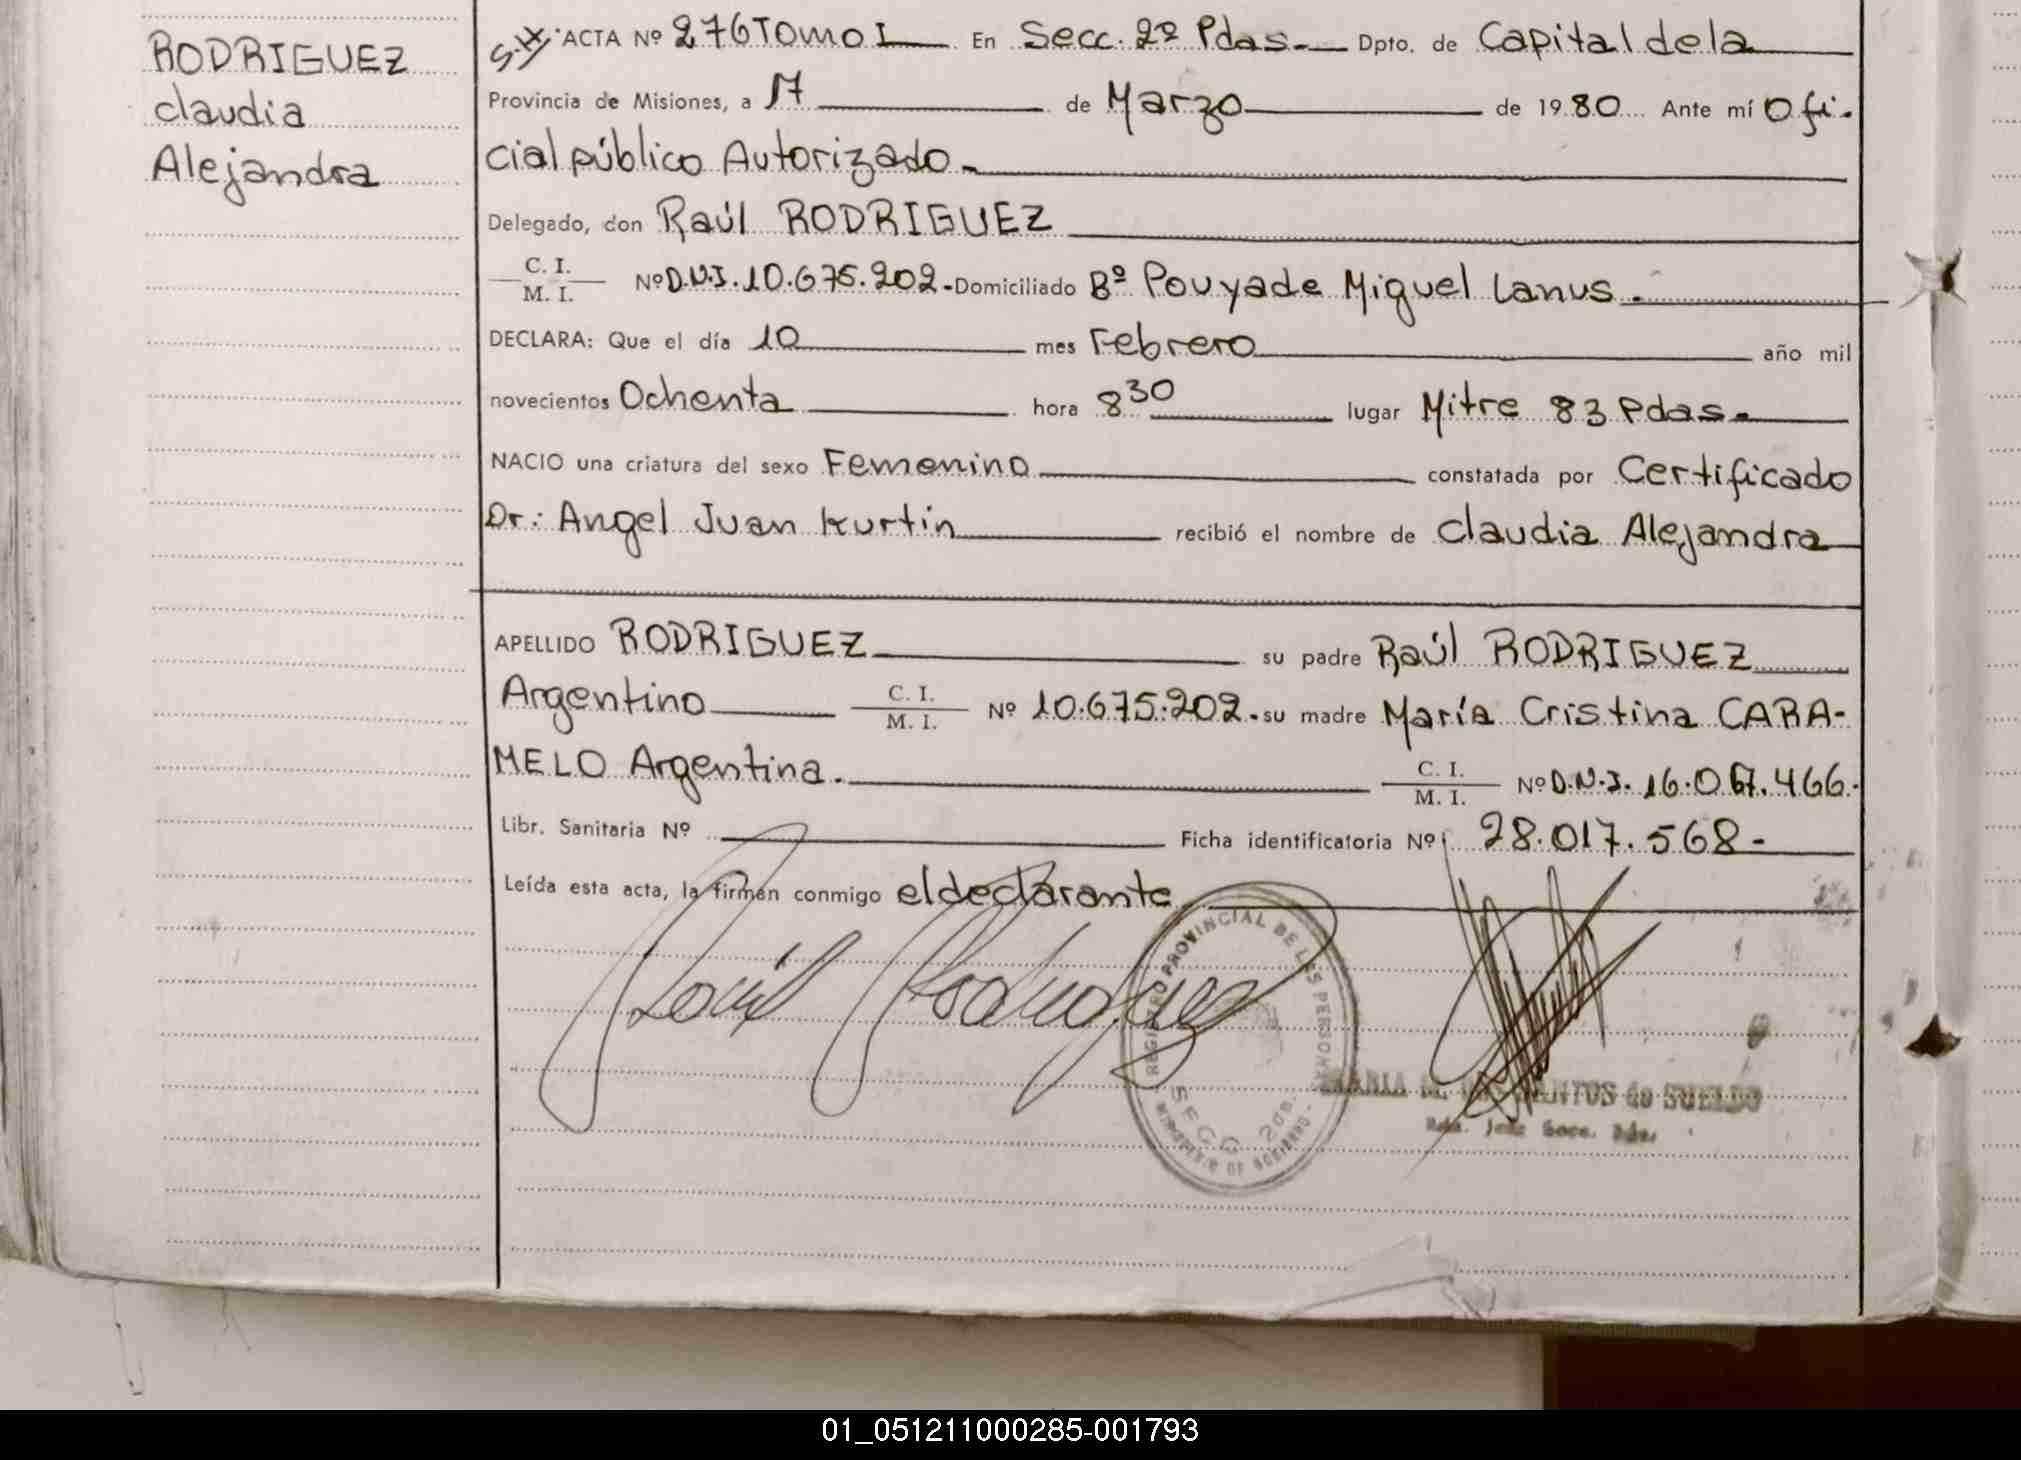 RODRIGUEZ
claudia
Alejandra
ACTA Nº 276 Tomo I En Secc. 2º Pdas. Dpto. de Capital de la
Provincia de Misiones, a 17 de Marzo de 1980 Ante mí Ofi-
cial público Autorizado.
Delegado, don Raúl RODRIGUEZ
C. I.
M. I. Nº D.N.I. 10.675.202. Domiciliado Bº Pouyade Miguel Lanus.
DECLARA: Que el día 10 mes Febrero año mil
novecientos Ochenta hora 8 30 lugar Mitre 83 Pdas.
NACIO una criatura del sexo Femenino constatada por Certificado
Dr: Angel Juan Kurtin recibió el nombre de Claudia Alejandra
APELLIDO RODRIGUEZ su padre Raúl RODRIGUEZ
Argentino C. I. M. I. Nº 10.675.202. su madre María Cristina CARA-
MELO Argentina. C. I. M. I. Nº D.N.I. 16.067.466.
Libr. Sanitaria Nº Ficha identificatoria Nº 28.017.568-
Leída esta acta, la firman conmigo el declarante
Raúl Rodriguez
REGISTRO PROVINCIAL DE LAS PERSONAS
SECC. 2da.
MINISTERIO DE GOBIERNO
MARIA DE LOS SANTOS de SUELDO
01_051211000285-001793